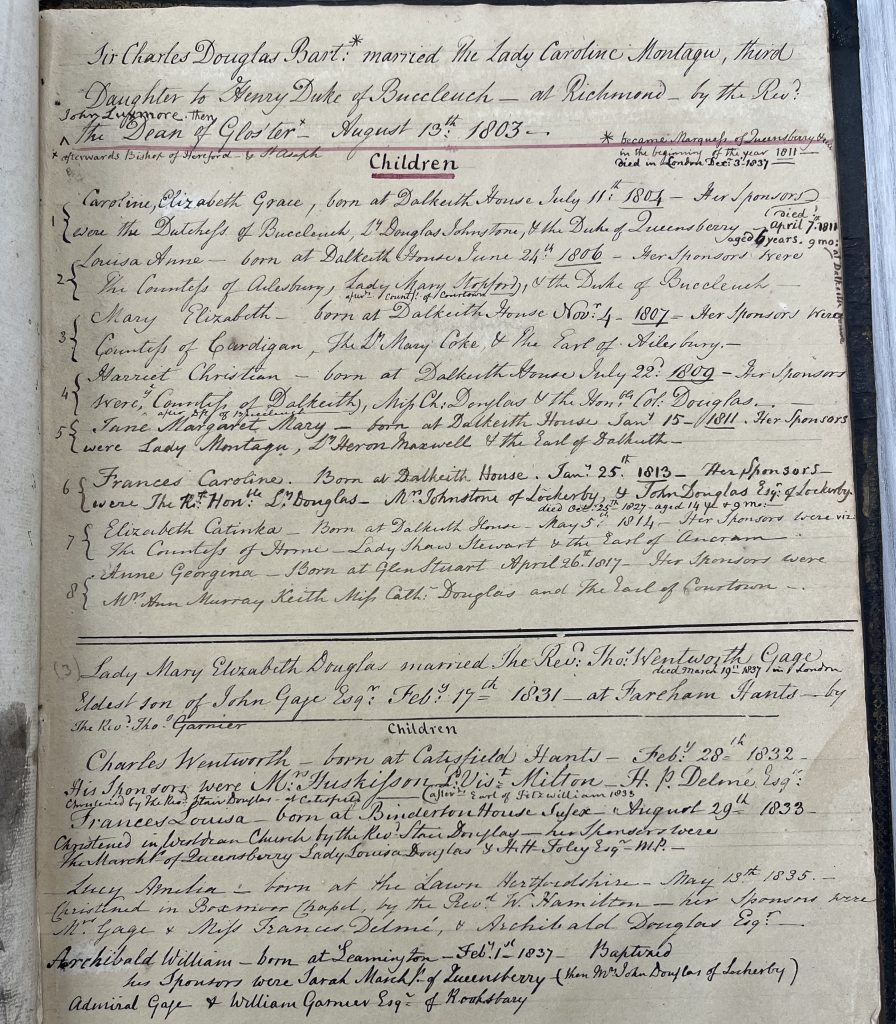 Sir Charles Douglas Bart:* married The Lady Caroline Montagu, third
Daughter to Henry Duke of Buccleuch – at Richmond – by the Revd:
John Luxmore then
^ the Dean of Gloster* – August 13th: 1803 –
* afterwards Bishop of Hereford & St Asaph
* became Marquess of Queensberry
in the beginning of the year 1811 –
Died in London Decr: 3d 1837 –
Children
1 { Caroline, Elizabeth Grace, born at Dalkeith House July 11:th 1804 – Her Sponsors
were the Dutchess of Buccleuch, Ly Douglas Johnstone, & the Duke of Queensberry
(Died April 7th 1811
aged 6 years. 9 mo: at Dalkeith House
2 { Louisa Anne – born at Dalkeith House June 24th 1806 – Her Sponsors were
The Countess of Ailesbury, Lady Mary Stopford), & the Duke of Buccleuch
afterds Countss of Courtown
3 { Mary Elizabeth – born at Dalkeith House Novr 4 – 1807 – Her Sponsors were
Countess of Cardigan, The Ly Mary Coke, & The Earl of Ailesbury. –
4 { Harriet Christian – born at Dalkeith House July 22d: 1809 – Her Sponsors
were, ye Countess of Dalkeith), Miss Ch: Douglas & the Honble Col: Douglas. –
of Buccleuch
5 { Jane Margaret Mary – born at Dalkeith House Jany 15 – 1811. Her Sponsors
were Lady Montagu, Ly Heron Maxwell & the Earl of Dalkeith –
6 { Frances Caroline. Born at Dalkeith House. Jany 25th 1813 – Her Sponsors
were The Rt Honble Ly Douglas – Mrs Johnstone of Lockerby, & John Douglas Esqr: of Lockerby.
died Octr: 25th 1827 – aged 14 y & 9 mo: –
7 { Elizabeth Catinka – Born at Dalkeith House – May 5th 1814 – Her Sponsors were viz
The Countess of Home – Lady Shaw Stewart & the Earl of Ancram –
8 { Anne Georgina – Born at Glen Stuart April 26th 1817 – Her Sponsors were
Mrs Ann Murray Keith Miss Cath: Douglas and The Earl of Courtown –
(3) Lady Mary Elizabeth Douglas married The Revd: Thos: Wentworth Gage
died March 19th 1837 in London
Eldest son of John Gage Esqr Feby 17th 1831 – at Fareham Hants – by
The Revd Thos Garnier
Children
Charles Wentworth – born at Catisfield Hants – Feby 28th 1832 –
His Sponsors were Mrs Huskisson Ld Vist Milton – H. P. Delmé Esqr:
Christened by the Revd Stair Douglas – at Catisfield (afterds Earl of Fitzwilliam 1833
Frances Louisa – born at Binderton House Sussex – August 29th 1833 –
Christened in Westdean Church by the Revd Stair Douglas – her Sponsors were
The Marchss of Queensberry Lady Louisa Douglas & H.H. Foley Esqr – MP. –
Lucy Amelia – born at the Lawn Hertfordshire – May 13th 1835. –
Christened in Boxmoor Chapel, by the Revd W. Hamilton – her Sponsors were
Mrs Gage & Miss Frances Delmé, & Archibald Douglas Esqr –
Archibald William – born at Leamington – Feby 1st 1837 Baptized
his Sponsors were Sarah Marchss of Queensberry (then Mrs John Douglas of Lockerby)
Admiral Gage & William Garnier Esqr of Rooksbury